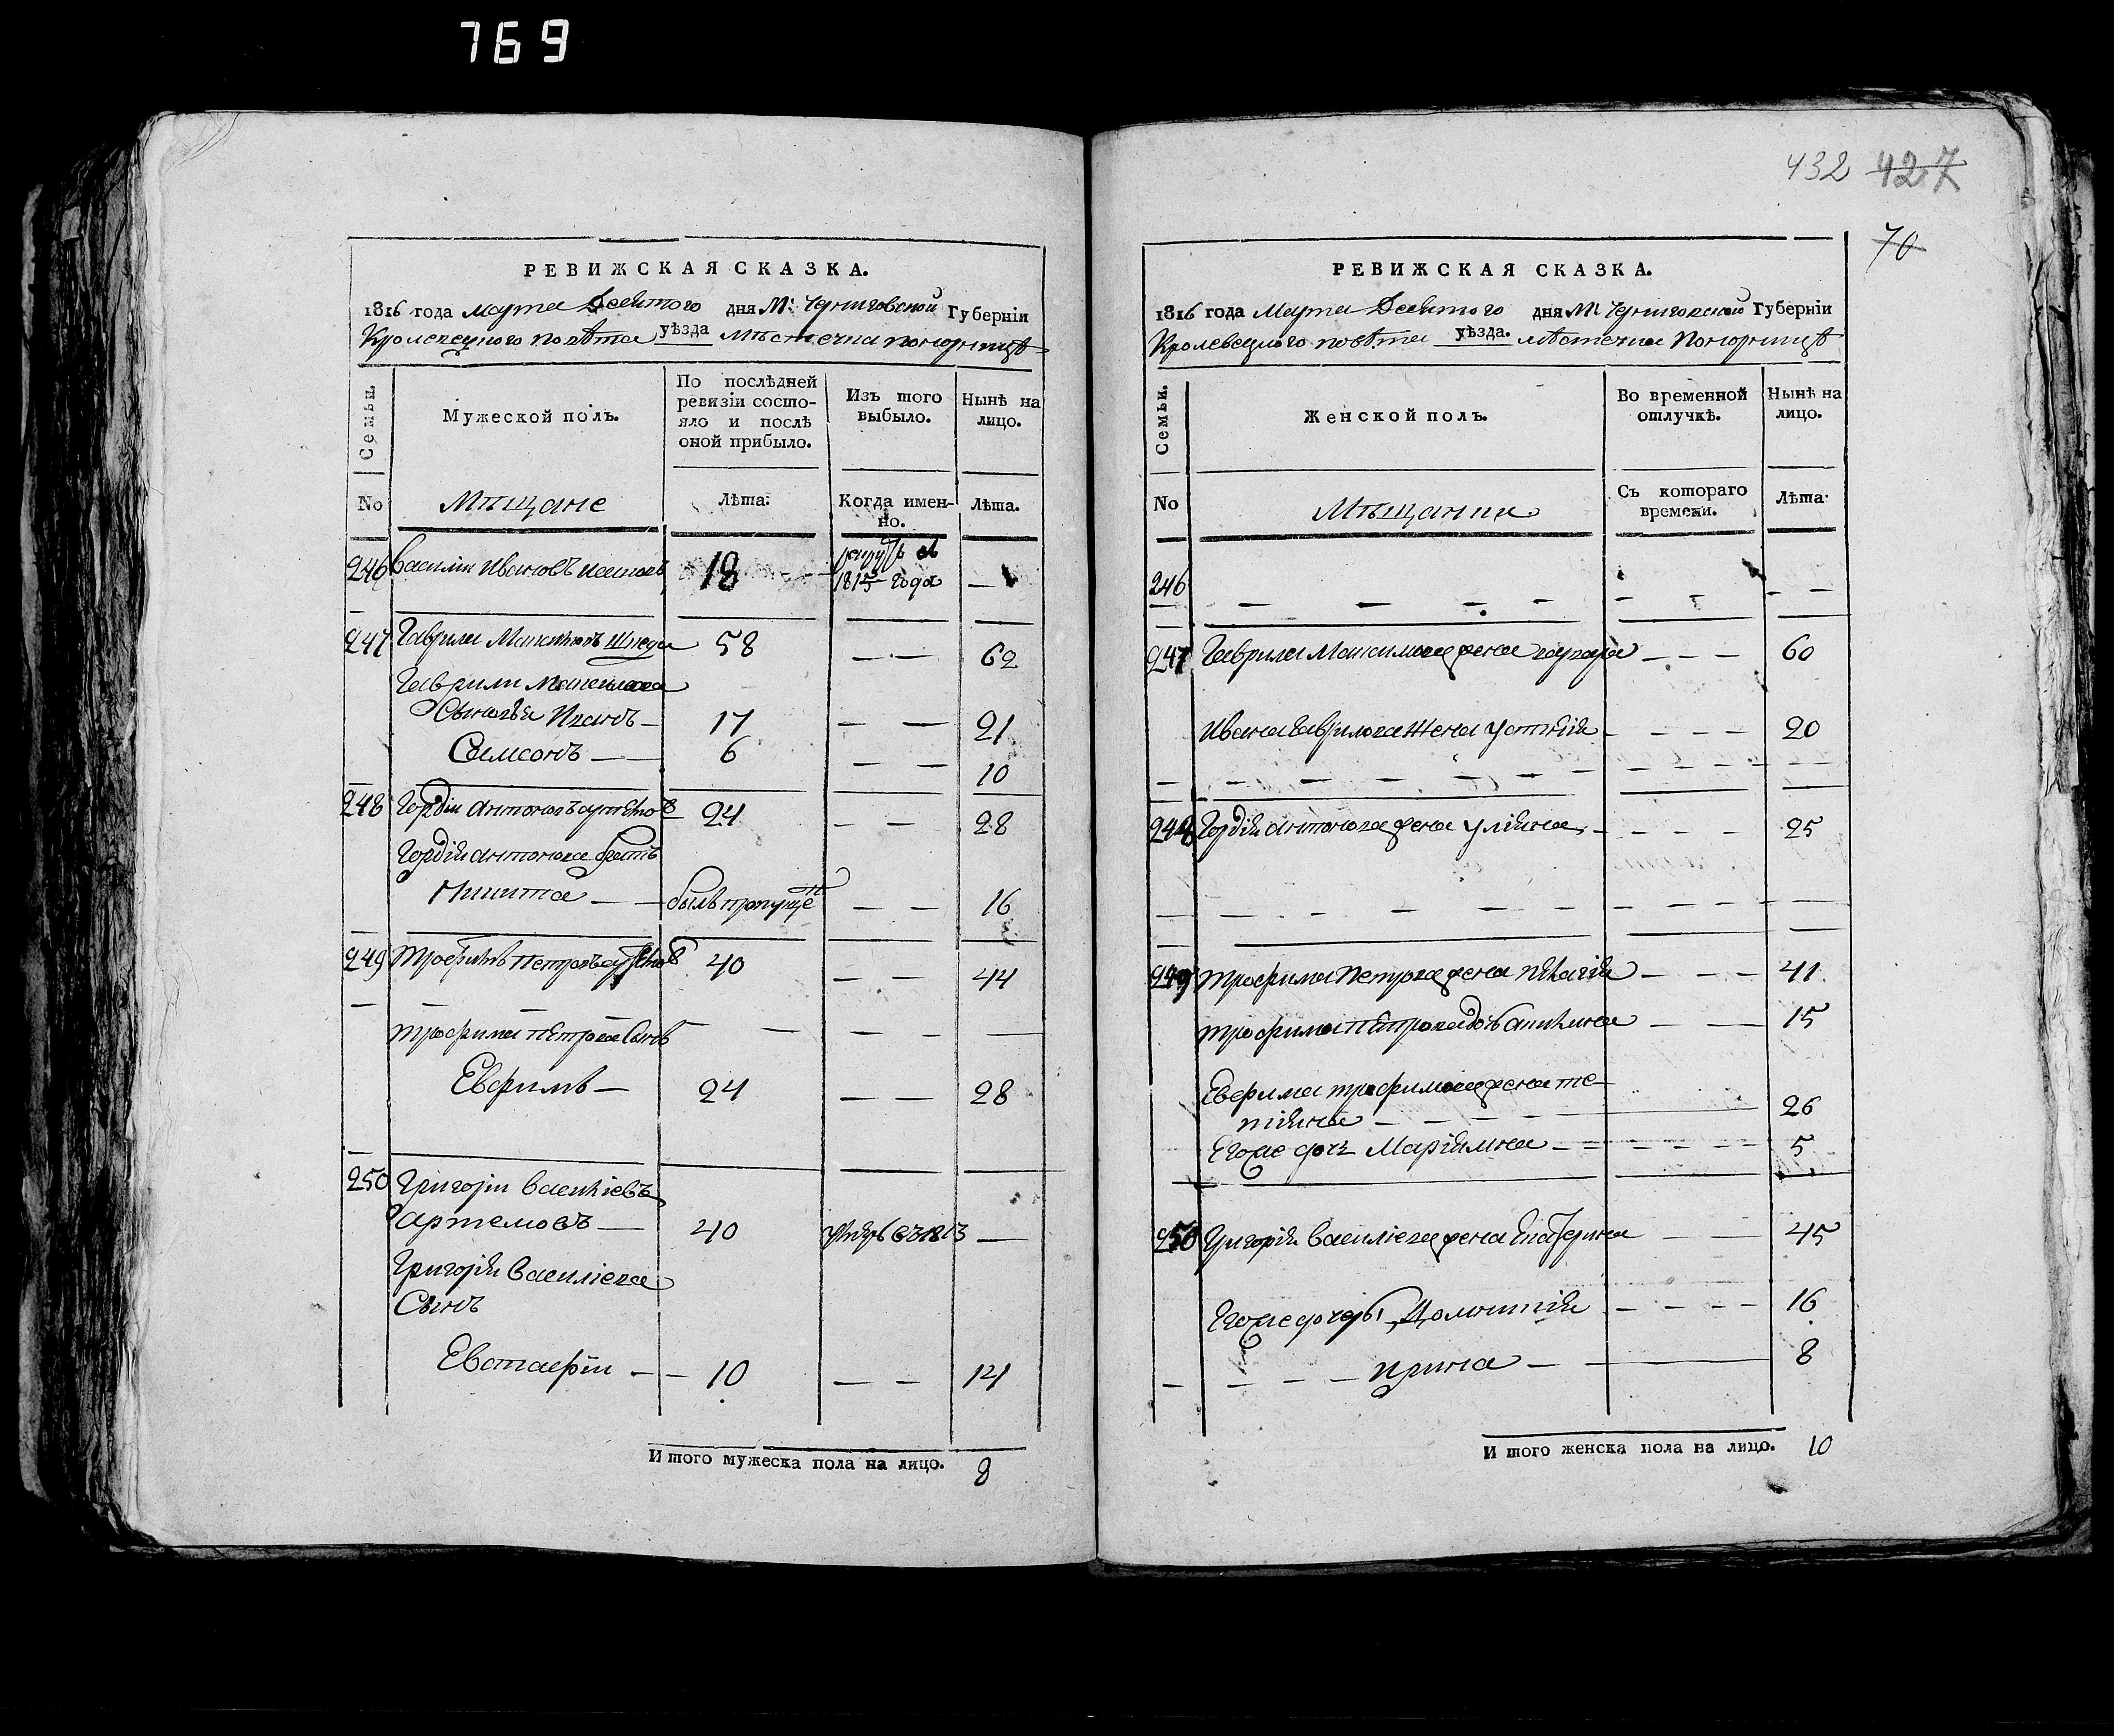 769
432 427
70
РЕВИЖСКАЯ СКАЗКА.
1816 года Марта Девятого дня М. Черниговской Губерніи
Кролевецкого повѣта уѣзда мѣстечка Понорницѣ
Семьи.
Мужеской полъ.
По послѣдней ревизіи состояло и послѣ оной прибыло.
Изъ того выбыло.
Нынѣ на лицо.
No
Мѣщане
Лѣта.
Когда именно.
Лѣта.
246 Василій Ивановъ 18
1815 года —
247 Гаврила Максимовъ 58 — — 62
Гаврили Максимова
Сыновья Иванъ — 17 — — 21
Самсонъ — — 6 — — 10
248 Гордій Антоновъ 24 — — 28
Гордія Антонова братъ
Никита — — былъ пропуще — — 16
249 Трофимъ Петровъ 40 — — 44
Трофима Петрова Сынъ
Евфимъ — 24 — — 28
250 Григорій Василіевъ
Артемовъ — 40 въ 1813 —
Григорія Василіева
Сынъ
Евстафій — — 10 — — 14
Итого мужеска пола на лицо. 8
РЕВИЖСКАЯ СКАЗКА.
1816 года Марта Девятого дня М. Черниговской Губерніи
Кролевецкого повѣта уѣзда. мѣстечка Понорницѣ
Семьи.
Женской полъ.
Во временной отлучкѣ.
Нынѣ на лицо.
No
Мѣщанки
Съ котораго времени.
Лѣта.
246
247 Гаврила Максимова жена — — — 60
Ивана Гаврилова жена Устинія — — — — 20
248 Гордія Антонова жена Уліяна — — — — 25
249 Трофима Петрова жена — — — 41
Трофима Петрова — — 15
Евфима Трофимова жена Те-
тіяна — — — — 26
Его же дочь Маріямна — — — — 5
250 Григорія Василіева жена Екатерина — — 45
Его же дочери Домникія — — — — 16
Ирина — — 8
Итого женска пола на лицо. 10